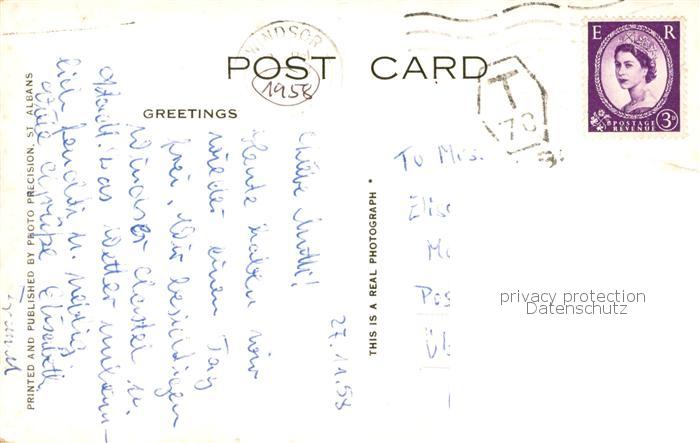 WINDSOR
POST CARD
1958
GREETINGS
E R
POSTAGE
REVENUE
3D
T
78
27.11.58
Liebe Mutti!
Heute haben wir
wieder einen Tag
frei. Wir besichtigen
Windsor Chastel u.
Stadt. Das Wetter
lich feucht u. neblig
Grüsse Elisabeth
To Mis.
Elis
Mo
Pos
Üb
PRINTED AND PUBLISHED BY PHOTO PRECISION, ST. ALBANS
THIS IS A REAL PHOTOGRAPH
privacy protection
Datenschutz